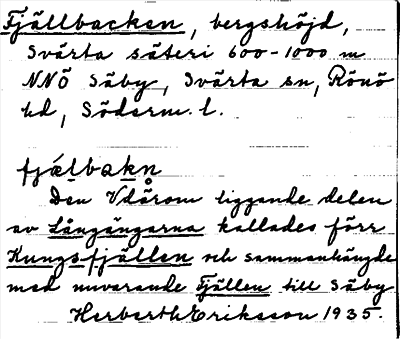 Fjällbacken, bergshöjd,
Svärta säteri 600-1000 m
NNÖ Säby, Svärta sn, Rönö
hd, Söderm. l.
fjälbakn
Den V därom liggande delen
av Långängarna kallades förr
Kungsfjällen och sammanhängde
med nuvarande Fjällen till Säby
Herberth Eriksson 1935.